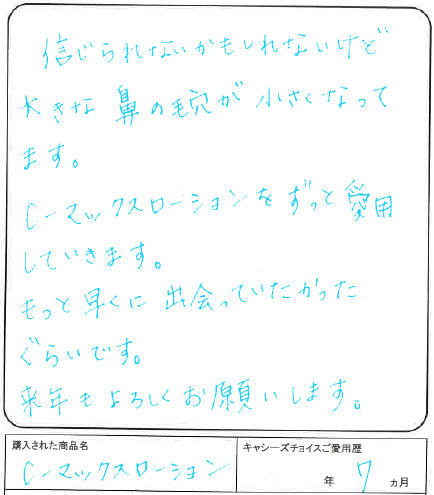 信じられないかもしれないけど
大きな鼻の毛穴が小さくなって
ます。
C-マックスローションをずっと愛用
していきます。
もっと早くに出会っていたかった
ぐらいです。
来年もよろしくお願いします。
購入された商品名
C-マックスローション
キャシーズチョイスご愛用歴
年 7 ヵ月